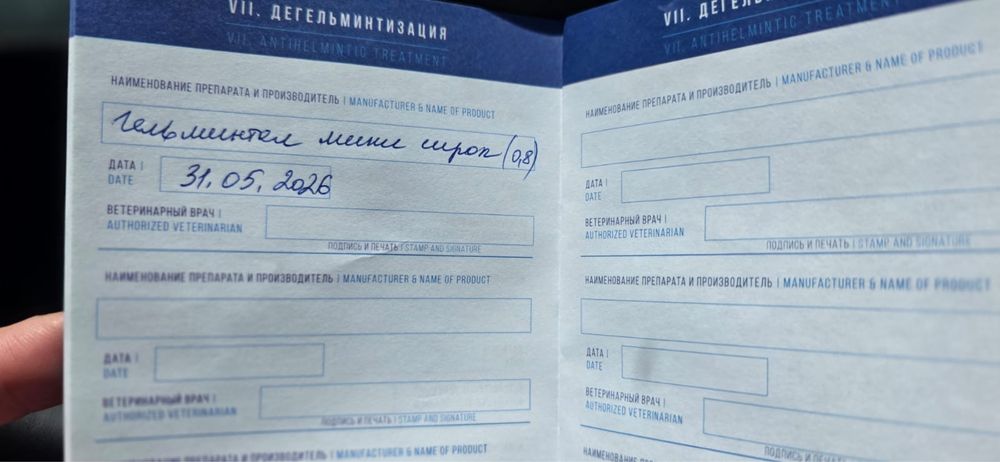 VII. ДЕГЕЛЬМИНТИЗАЦИЯ
VII. ANTIHELMINTIC TREATMENT
НАИМЕНОВАНИЕ ПРЕПАРАТА И ПРОИЗВОДИТЕЛЬ | MANUFACTURER & NAME OF PRODUCT
Гельминтал мини сироп (0,8)
ДАТА |
DATE
31.05.2026
ВЕТЕРИНАРНЫЙ ВРАЧ |
AUTHORIZED VETERINARIAN
ПОДПИСЬ И ПЕЧАТЬ | STAMP AND SIGNATURE
НАИМЕНОВАНИЕ ПРЕПАРАТА И ПРОИЗВОДИТЕЛЬ | MANUFACTURER & NAME OF PRODUCT
ДАТА |
DATE
ВЕТЕРИНАРНЫЙ ВРАЧ |
AUTHORIZED VETERINARIAN
ПОДПИСЬ И ПЕЧАТЬ | STAMP AND SIGNATURE
НАИМЕНОВАНИЕ ПРЕПАРАТА И ПРОИЗВОДИТЕЛЬ | MANUFACTURER & NAME OF PRODUCT
VII. ДЕГЕЛЬМ
VII. ANTIHELMINTIC TREATMENT
НАИМЕНОВАНИЕ ПРЕПАРАТА И ПРОИЗВОДИТЕЛЬ | MANUFACTURER & NAME OF PRODUCT
ДАТА |
DATE
ВЕТЕРИНАРНЫЙ ВРАЧ |
AUTHORIZED VETERINARIAN
ПОДПИСЬ И ПЕЧАТЬ | STAMP AND SIGNATURE
НАИМЕНОВАНИЕ ПРЕПАРАТА И ПРОИЗВОДИТЕЛЬ | MANUFACTURER & NAME OF PRODUCT
ДАТА |
DATE
ВЕТЕРИНАРНЫЙ ВРАЧ |
AUTHORIZED VETERINARIAN
ПОДПИСЬ И ПЕЧАТЬ | STAMP AND
НАИМЕНОВАНИЕ